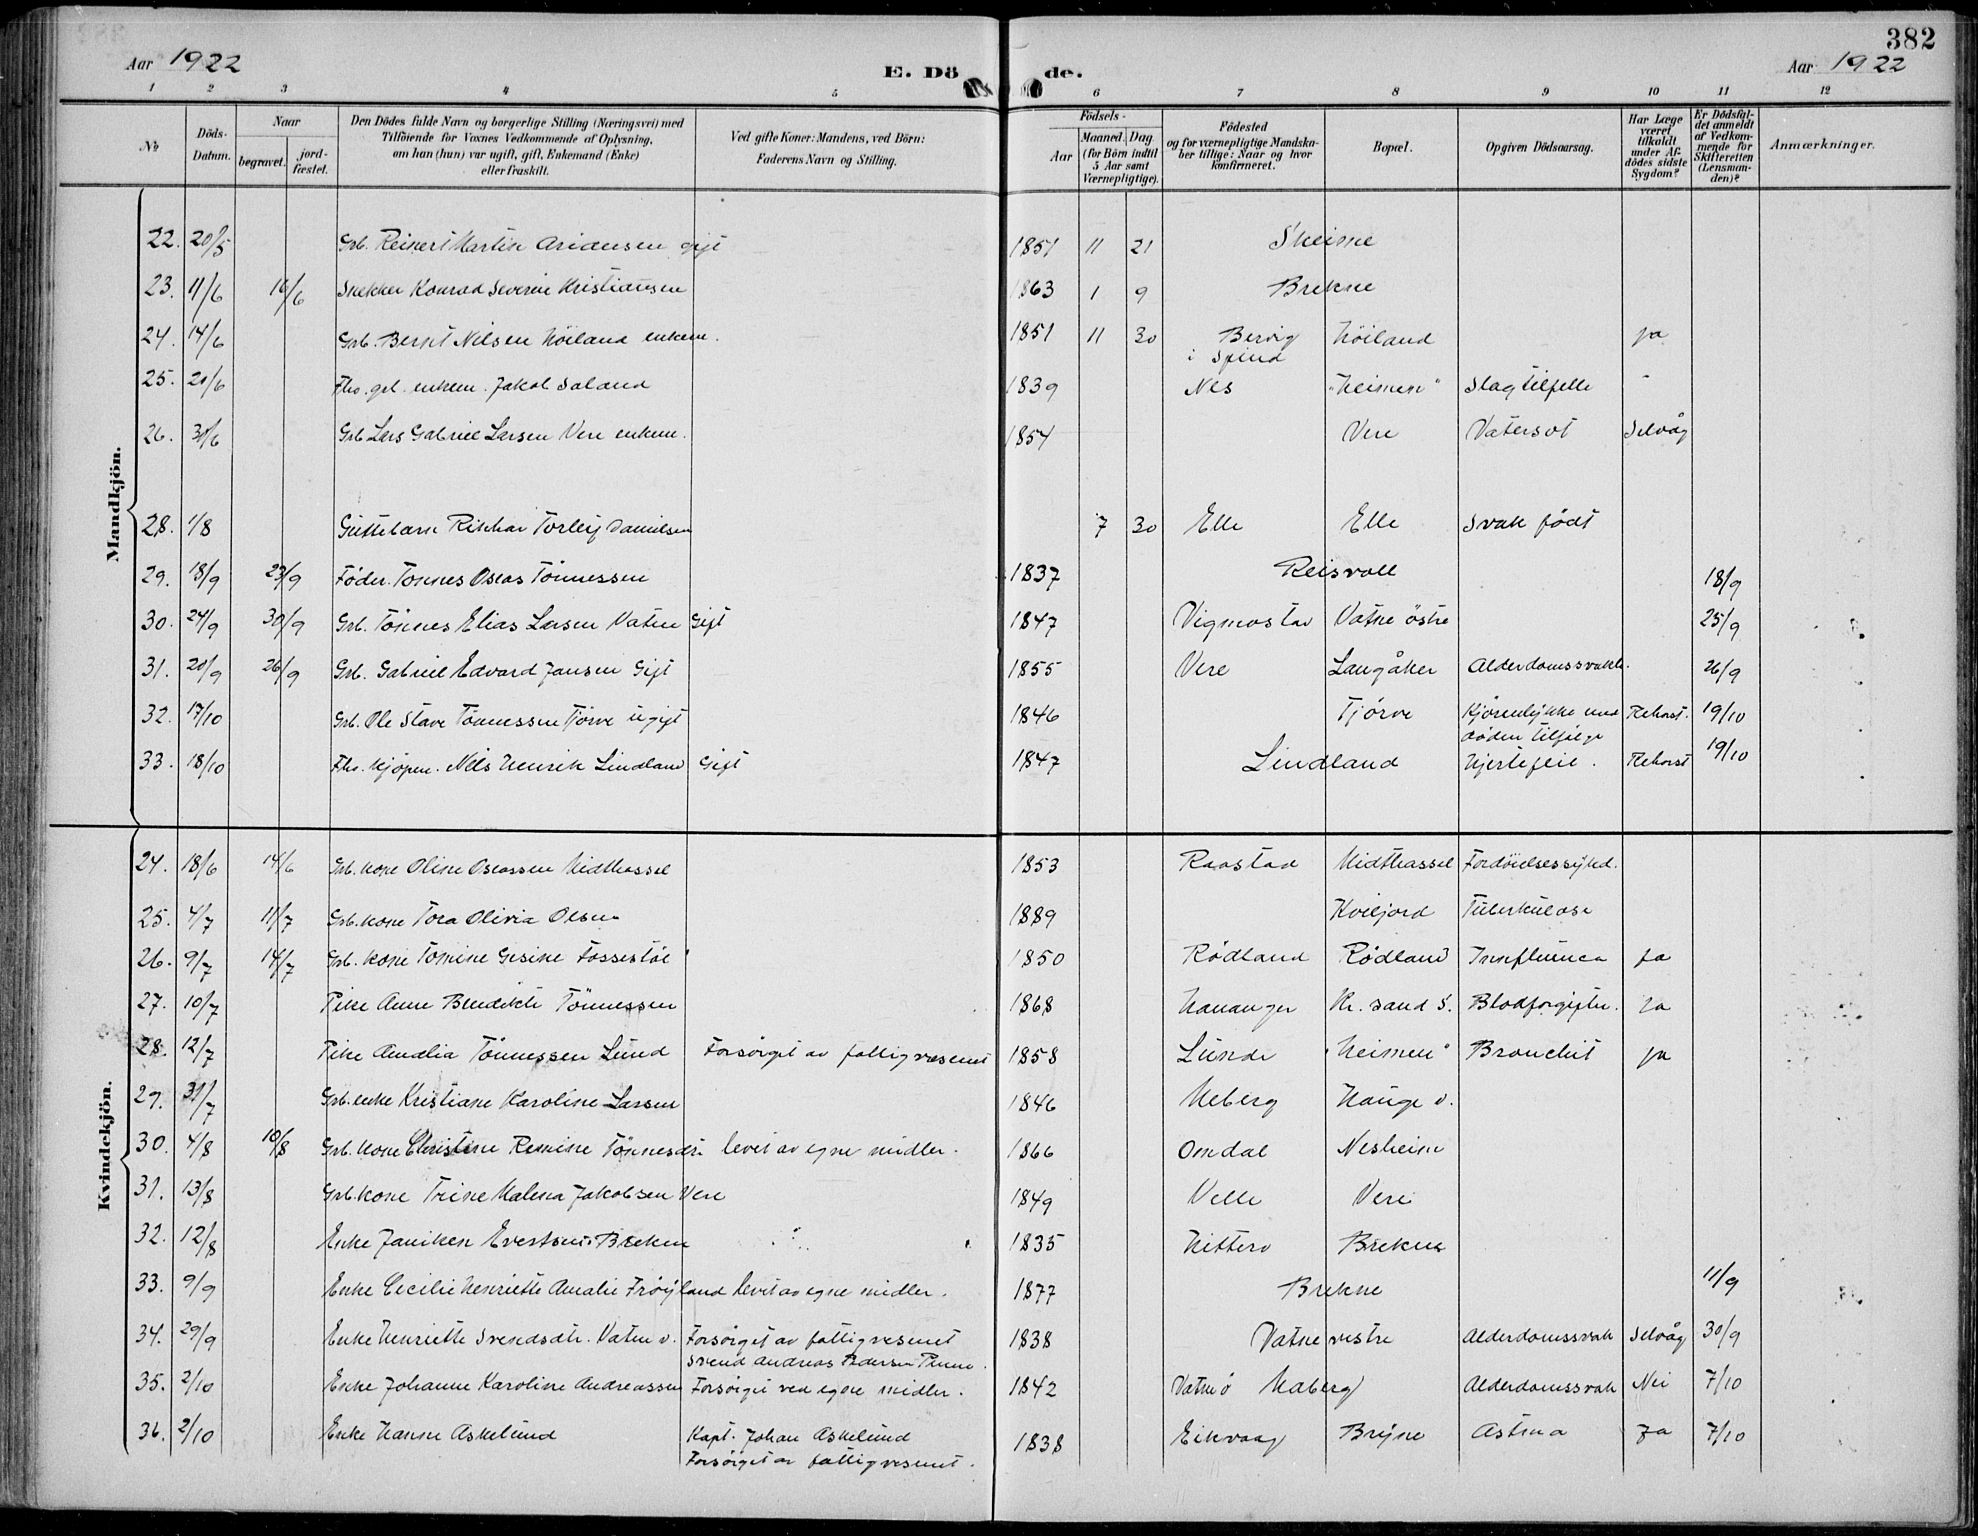 382
Aar 1922
E. Dö de.
Aar 1922
1 2 3 4 5 6 7 8 9 10 11 12
No
Döds-Datum.
Naar
begravet.
jord-fæstet.
Den Dödes fulde Navn og borgerlige Stilling (Næringsvei) med
Tilföiende for Voxnes Vedkommende af Oplysning,
om han (hun) var ugift, gift, Enkemand (Enke)
eller fraskilt.
Ved gifte Koner: Mandens, ved Börn:
Faderens Navn og Stilling.
Födsels-
Aar
Maaned. Dag
(for Börn indtil
5 Aar samt
Værnepligtige).
Födested
og for værnepligtige Mandska-
ber tillige: Naar og hvor
konfirmeret.
Bopæl.
Opgiven Dödsaarsag.
Har Læge
været
tilkaldt
under Af-
dödes sidste
Sygdom?
Er Dödsfal-
det anmeldt
af Vedkom-
mende for
Skifteretten
(Lensman-
den)?
Anmærkninger.
Mandkjön.
22. 20/5 Grb. Reinert Martin Ariansen gift 1851 11 21 Skeime
23. 11/6 16/6 Snekker Konrad Severin Kristiansen 1863 1 9 Brekne
24. 14/6 Grb. Bernt Nilsen Höiland enkem. 1851 11 30 Bervig i Spind Höiland ja
25. 20/6 Fhv. enkem. Jakob Saland 1839 Nes "Heimen" Slagtilfelle "
26. 30/6 Grb Lars Gabriel Larsen Vere enkem. 1854 Vere Vatersot Selvåg
28. 1/8 Guttebarn Rikhar Torleif Danielsen 7 30 Elle Elle Svak födt
29. 18/9 23/9 Föder. Tönnes Oseas Tönnessen 1837 Reisvoll 18/9
30. 24/9 30/9 Grb. Tönnes Elias Larsen Vatne Gift 1847 Vigmostad Vatne östre 25/9
31. 20/9 26/9 Grb. Gabriel Edvard Jansen Gift 1855 Vere Langåker Alderdomssvakh. 26/9
32. 17/10 Grb. Ole Stave Tönnessen Tjörve ugift 1846 Tjörve Kjöreulykke med döden tilfölge Rehorst. 19/10
33. 18/10 Fhv. kjöpm. Nils Henrik Lindland Gift 1847 Lindland Hjertefeil. Rehorst 19/10
Kvindekjön.
24. 18/6 14/6 Grb. kone Oline Oseassen Midthassel 1853 Raastad Midthassel Fordöielsessykd.
25. 4/7 11/7 Grb. kone Tora Olivia Olsen 1889 Kviljord Tuberkulose
26. 9/7 14/7 Grb. kone Tomine Gesine Fossestöl 1850 Rödland Rödland Innfluenca ja
27. 10/7 Pike Anne Bendikte Tönnessen 1868 Hananger Kr. sand S. Blodforgiftn. ja
28. 12/7 Pike Amalia Tönnessen Lund Forsörget av fattigvæsenet 1858 Lunde "Heimen" Bronchit ja
29. 31/7 Grb. enke Kristiane Karoline Larsen 1846 Meberg Hauge v.
30. 4/8 10/8 Grb. kone Christine Remine Tönnesdt. levet av egne midler. 1866 Omdal Nesheim
31. 13/8 Grb. kone Trine Malena Jakobsen Vere 1849 Velle Vere
32. 12/8 Enke Janiken Evertsen Brekne " 1835 Hitterö Brekne
33. 9/9 Enke Cecilie Henriette Amalie Fröiland levet av egne midler. 1877 Brekne 11/9
34. 29/9 Enke Henriette Svendsdtr. Vatne v. Forsörget av fattigvesenet 1838 Vatne vestre Alderdomssvak Selvåg 30/9
Svend Andreas Pedersen
35. 2/10 Enke Johanne Karoline Andreassen Forsörget ved egne midler. 1842 Vatne ö Maberg Alderdomssvak Nei 7/10
36. 2/10 Enke Hanne Askelund Kapt. Johan Askelund 1838 Eikvaag Bryne Astma Ja 7/10
Forsörget av fattigvesenet.